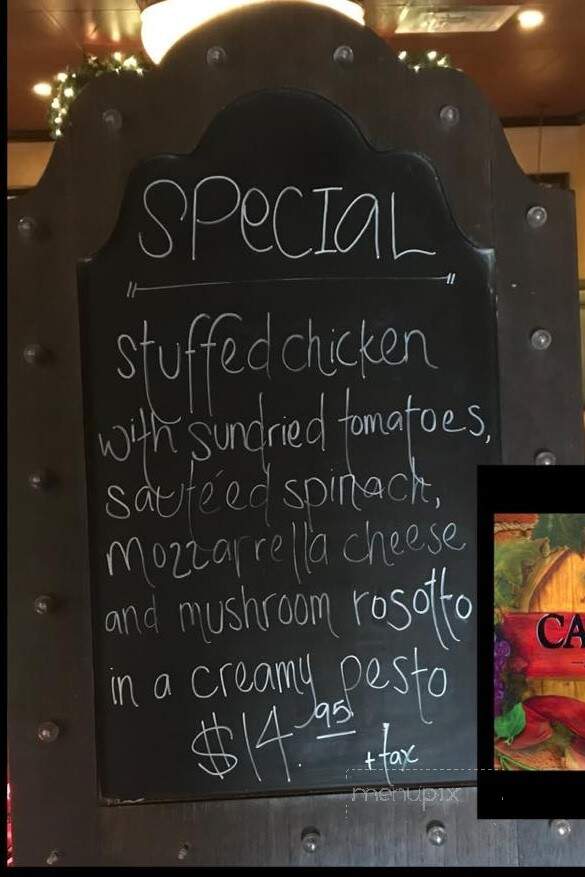 SPeCIaL
stuffed chicken
with sundried tomatoes,
sautéed spinach,
mozzarrella cheese
and mushroom rosotto
in a creamy pesto
$14.95
+ tax
menupix
CA